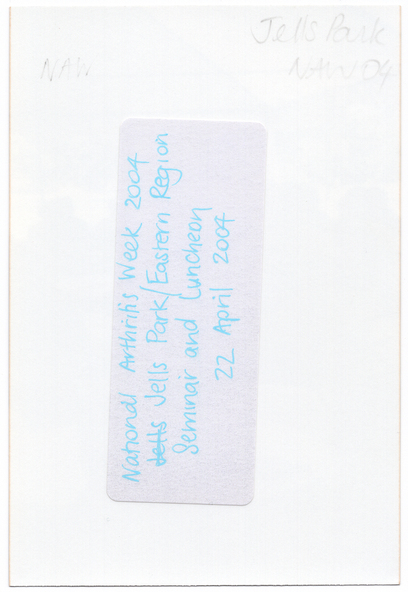 Jells Park
NAW
NAW04
National Arthritis Week 2004
Jells Jells Park/Eastern Region
Seminar and Luncheon
22 April 2004